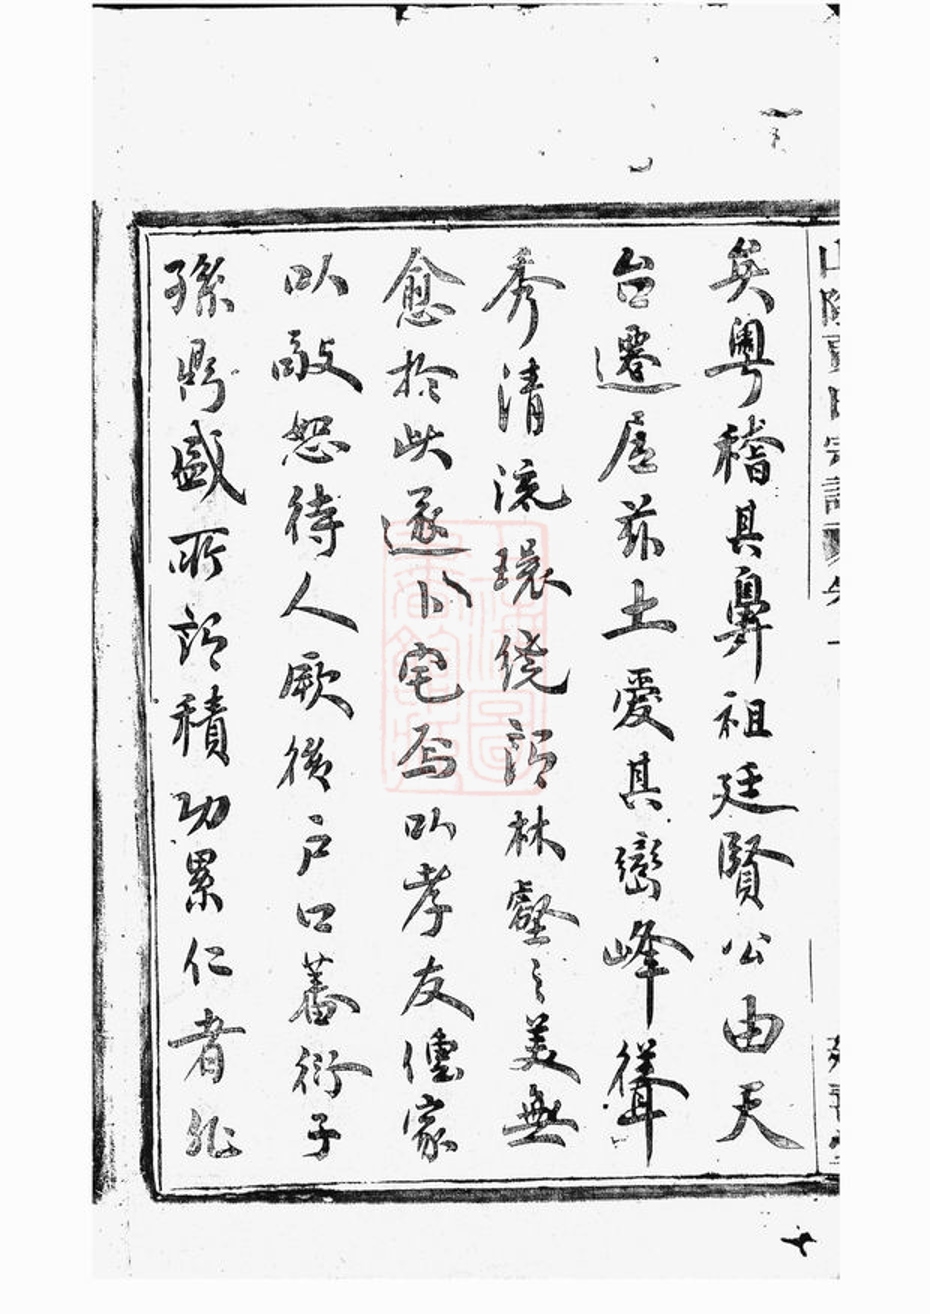 矣粵稽其鼻祖廷賢公由天
台遷居茲土愛其巒峰聳
秀清流環繞謂林壑之美無
愈於此遂卜宅焉以孝友傳家
以敬恕待人厥後戶口蕃衍子
孫鼎盛所謂積功累仁者非